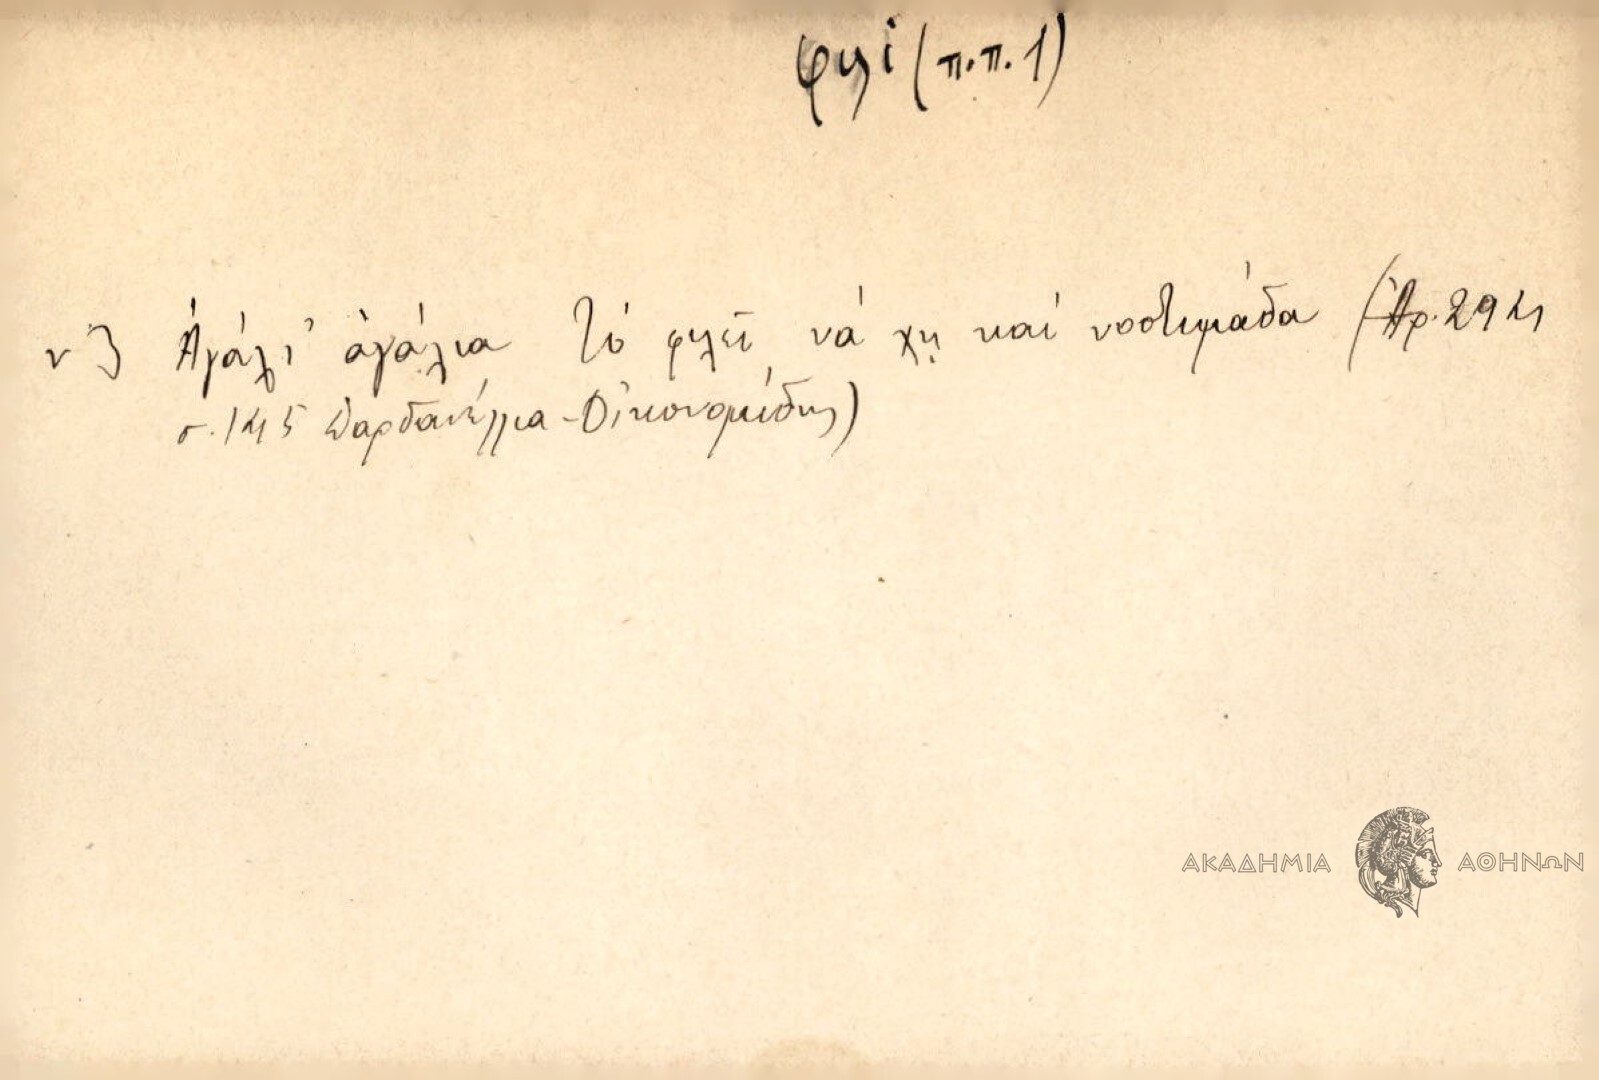 φιλί (π.π. 1)
ν 3 Ἀγάλι' ἀγάλια τό φιλεῖ νά χῃ καί νοστιμάδα (Ἀρ. 294
σ. 145 Δαρδανέλλια - Οἰκονομίδης)
ΑΚΑΔΗΜΙΑ ΑΘΗΝΩΝ